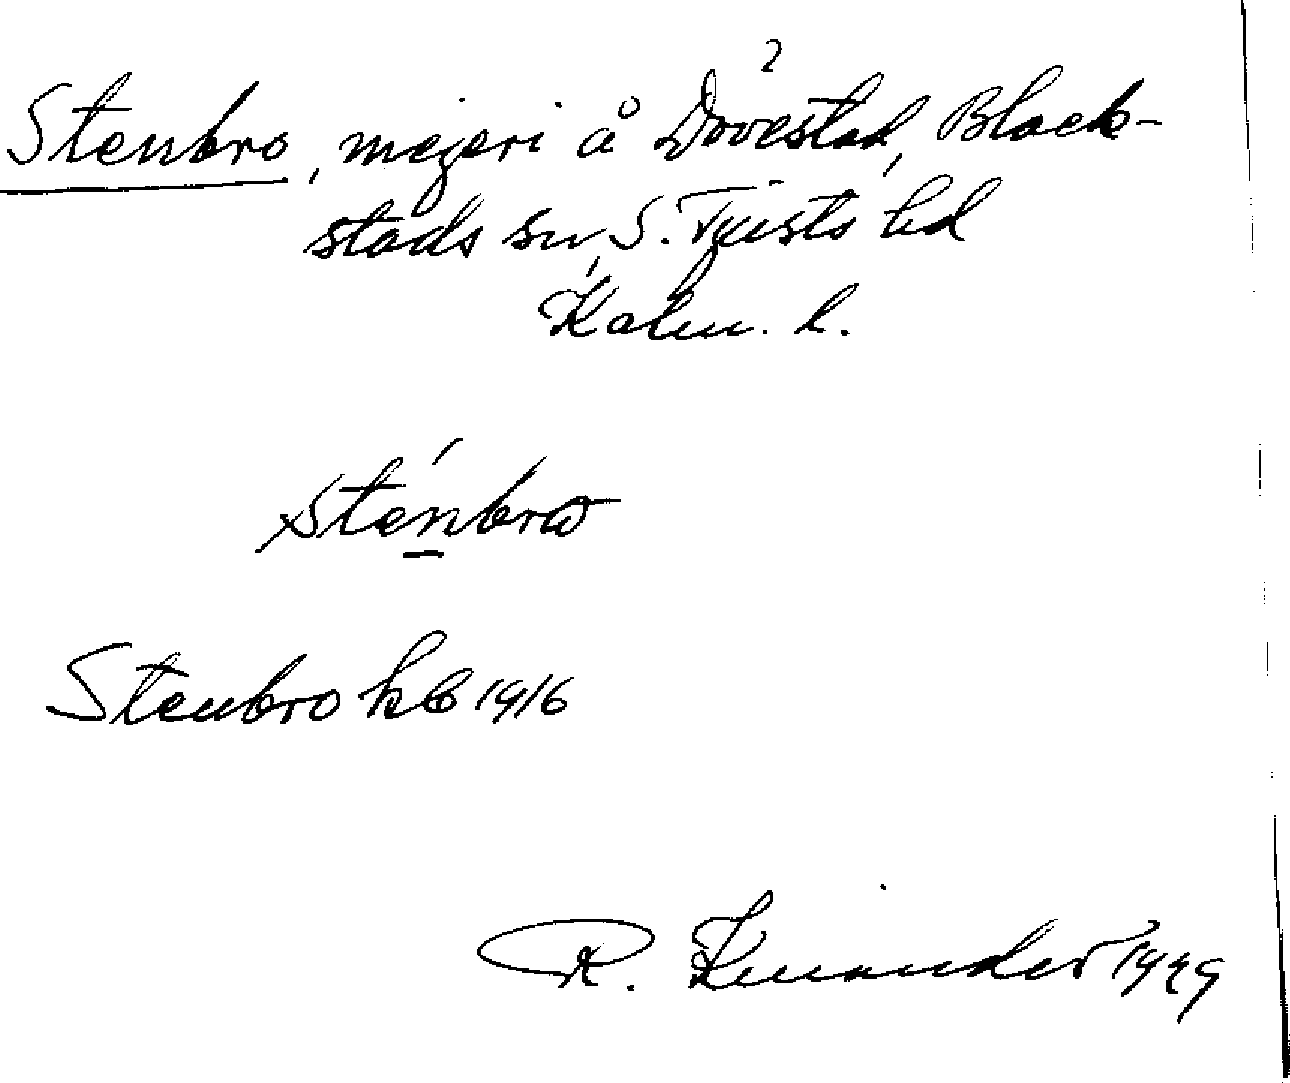 Stenbro, mejeri å Dovestad, ² Black-
stads sn, S. Tjusts hd
Kalm. l.
Sténbrω
Stenbro kb 1916
R. Knuander 1929